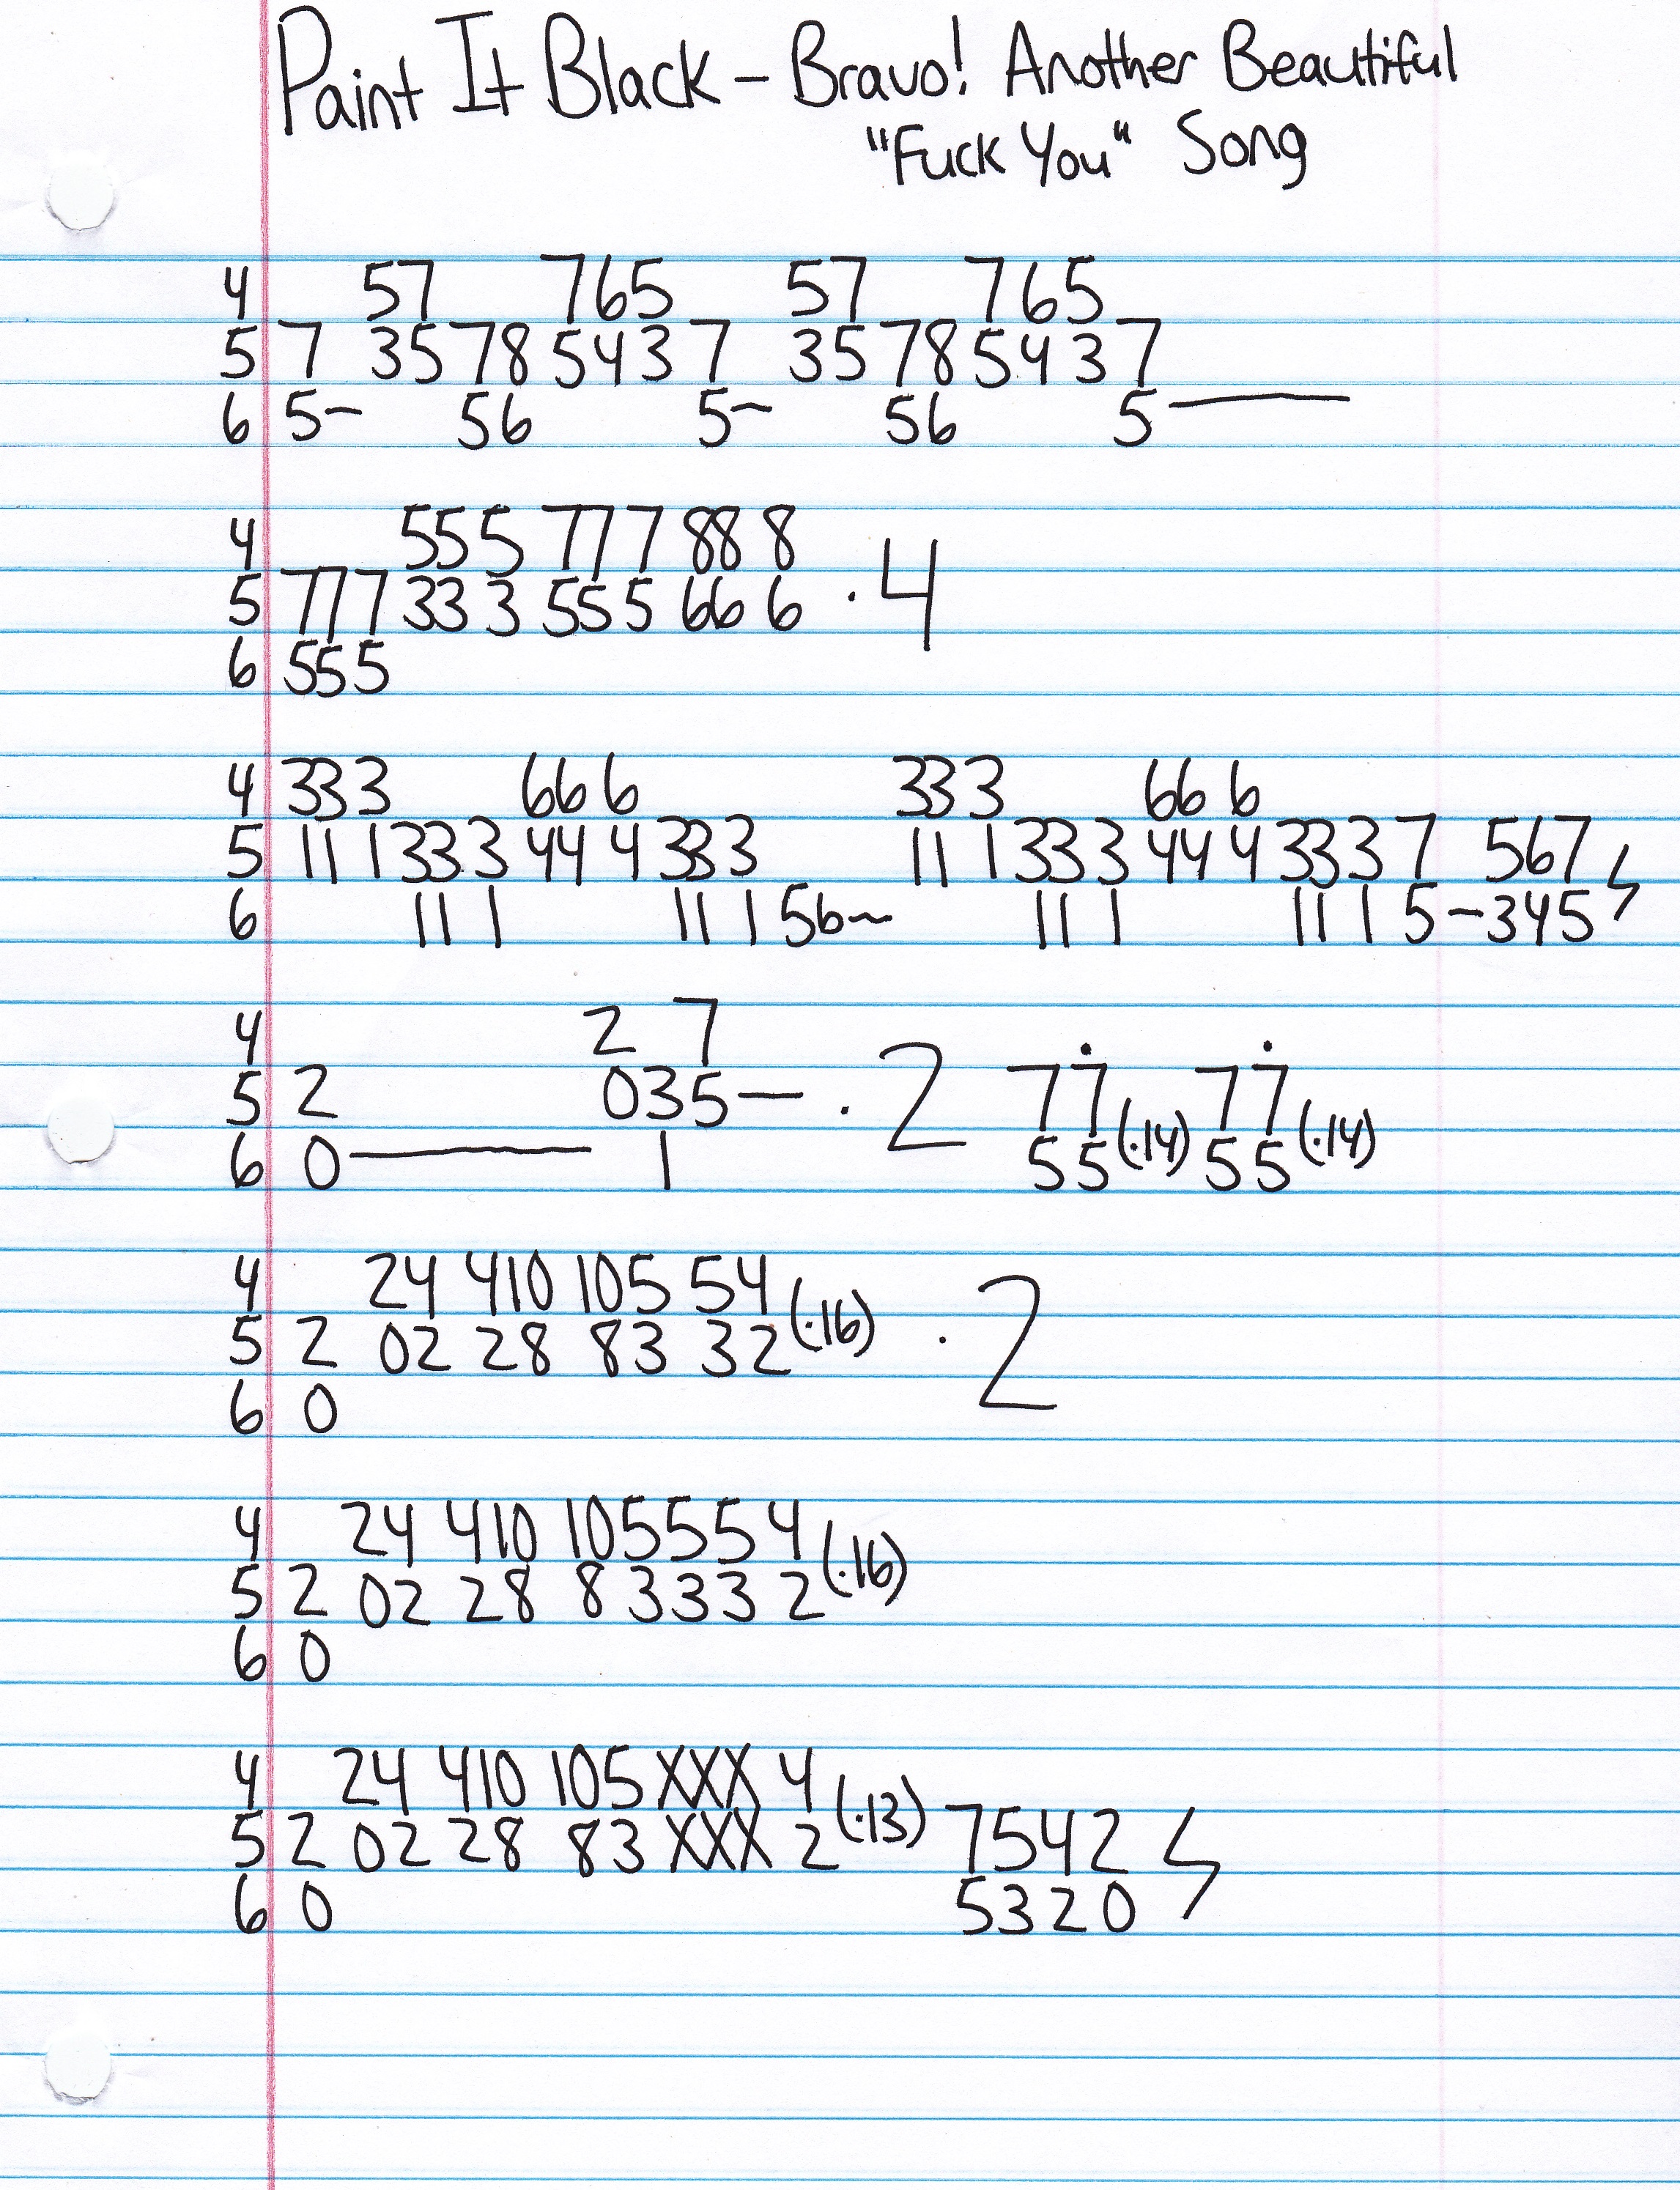 Paint It Black - Bravo! Another Beautiful
"Fuck You" Song
4 57 765 57 765
5 7 35 78 543 7 35 78 543 7
6 5~ 56 5~ 56 5—
4 555 777 888 · 4
5 777 333 555 666
6 555
4 333 666 333 666
5 111 333 444 333 111 333 444 333 7 567
6 111 111 56~ 111 111 5-345
4 2 7
5 2 035— · 2 77 (·14) 77 (·14)
6 0— 1 55 55
4 24 410 105 54
5 2 02 28 83 32 (·16) · 2
6 0
4 24 410 105554
5 2 02 28 8333 2 (·16)
6 0
4 24 410 105XXX 4
5 2 02 28 83 XXX 2 (·13) 7542
6 0 5320